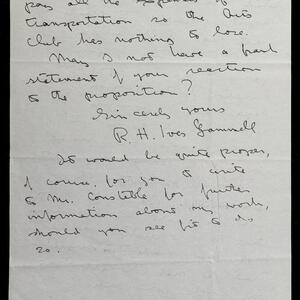 pay all the expenses of
transportation so the Arts
Club has nothing to lose.
May I not have a frank
statement of your reaction
to the proposition?
Sincerely yours
R. H. Ives Gammell
It would be quite proper,
of course, for you to write
to Mr. Constable for further
information about my work,
should you see fit to do
so.